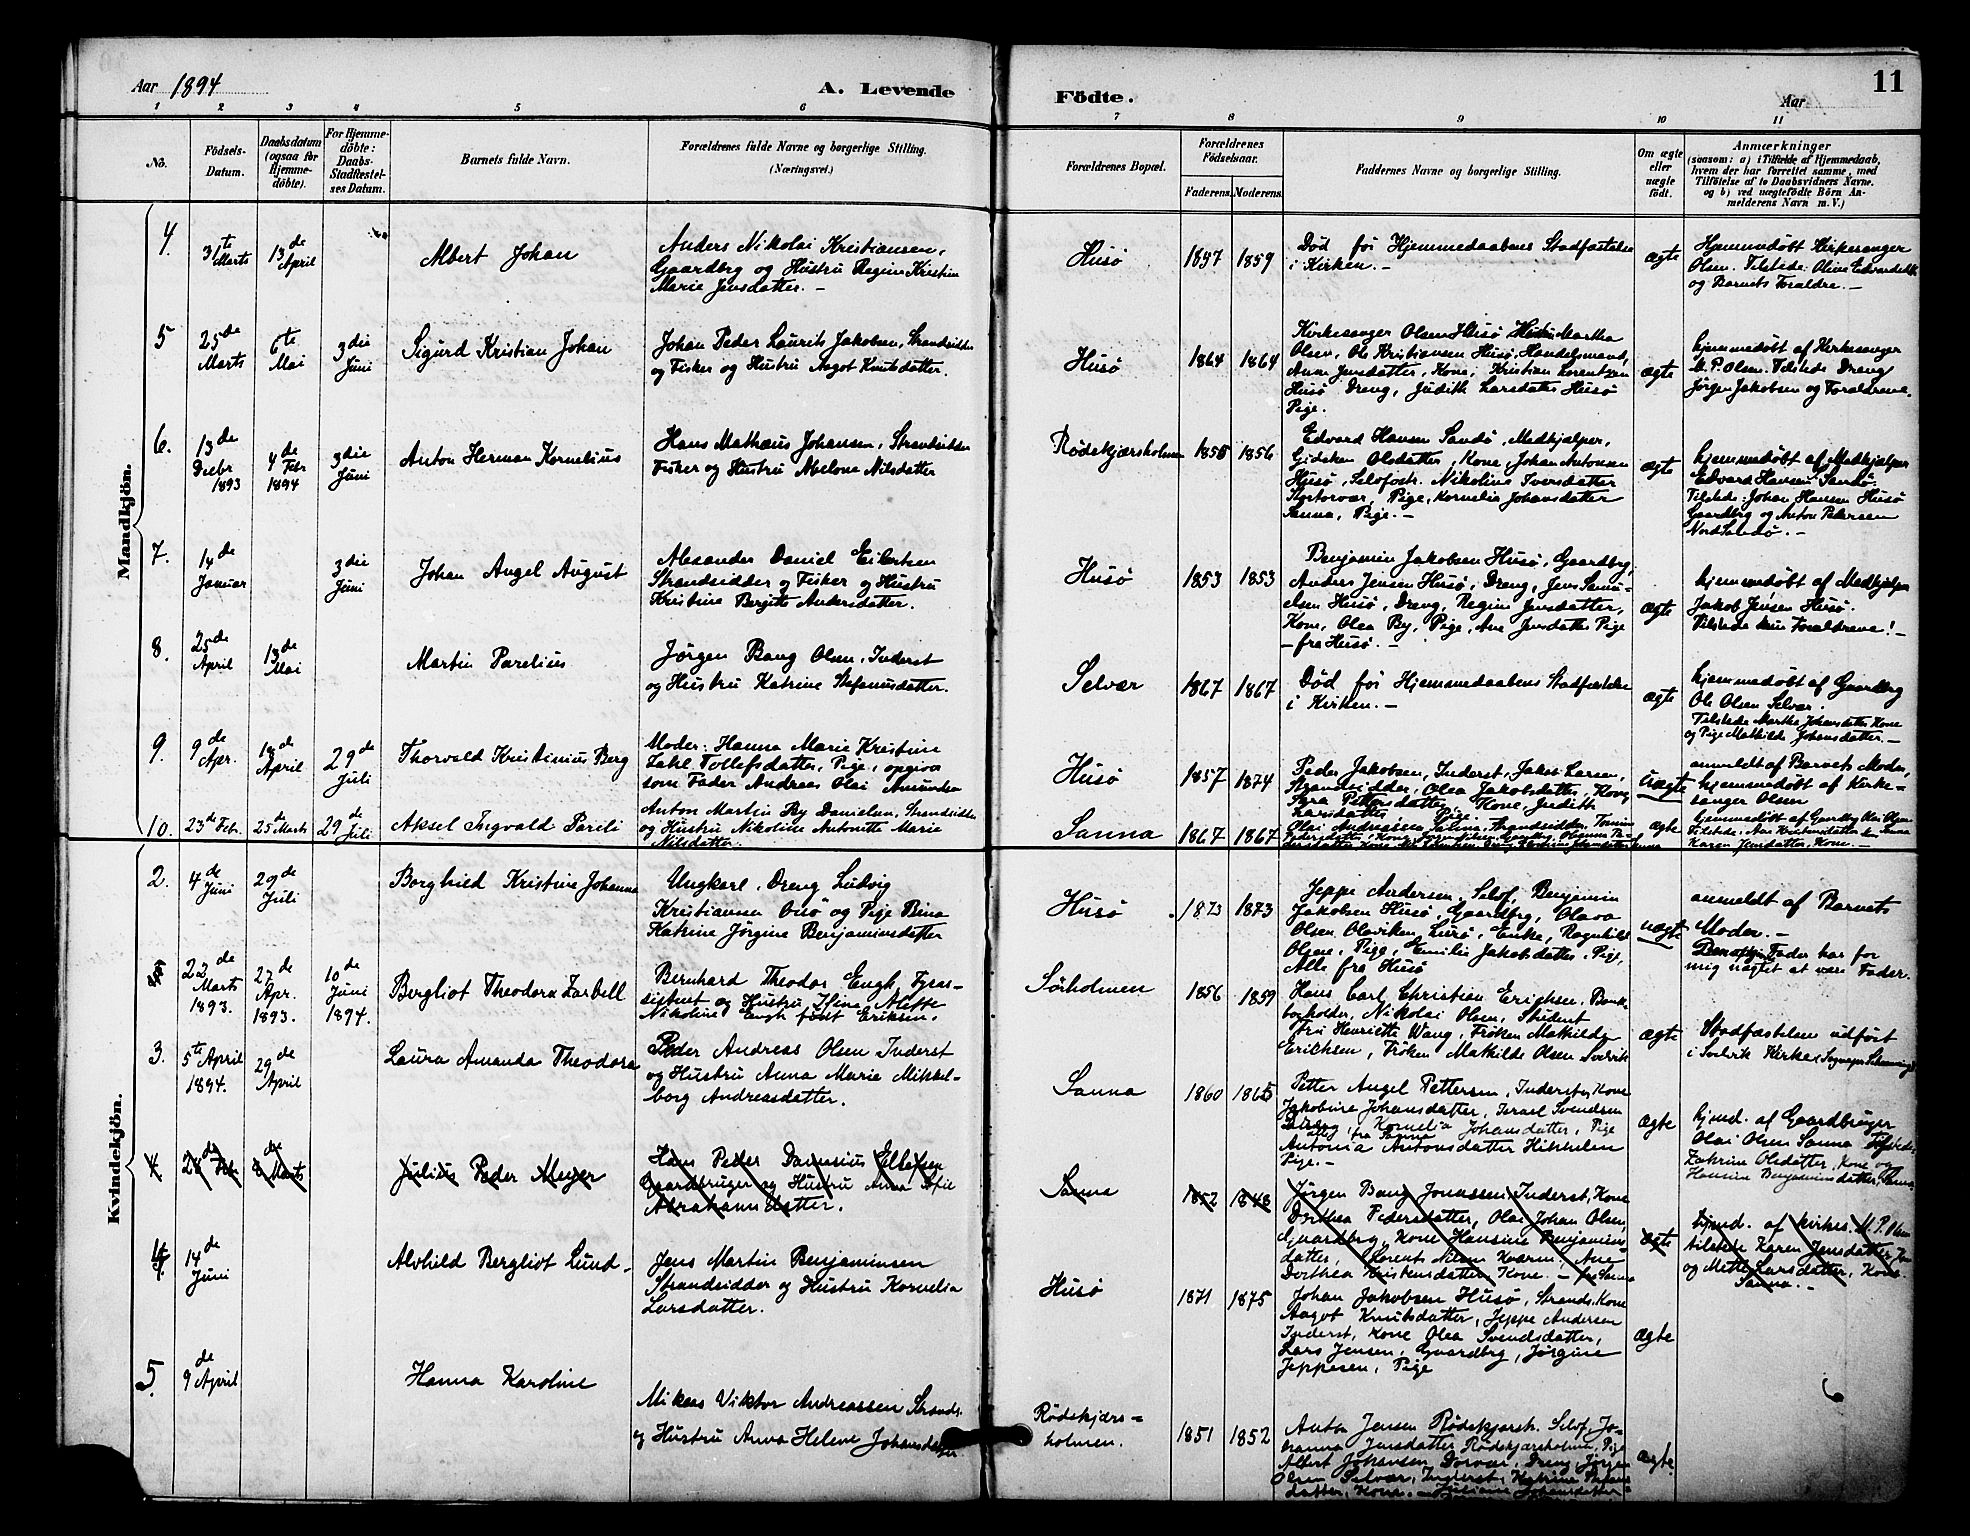 Aar 1894
A. Levende
Födte.
Aar
11
1 2 3 4 5 6 7 8 9 10 11
No.
Födsels-
Datum.
Daabsdatum
(ogsaa for
Hjemme-
döbte).
For Hjemme-
döbte:
Daabs-
Stadfæstel-
ses Datum.
Barnets fulde Navn.
Forældrenes fulde Navne og borgerlige Stilling.
(Næringsvei.)
Forældrenes Bopæl.
Forældrenes
Födselsaar.
Faderens. Moderens.
Faddernes Navne og borgerlige Stilling.
Om ægte
eller
uægte
födt.
Anmærkninger
(saasom: a) i Tilfælde af Hjemmedaab,
hvem der har forrettet samme, med
Tilföielse af to Daabsvidners Navne.
og b) ved uægtefödte Börn An-
melderens Navn m. V.)
Mandkjön.
4.
31te
Marts
13de
April
Albert Johan
Anders Nikolai Kristiansen,
Gaardbrg og Hustru Regine Kristine
Marie Jensdatter. –
Husö
1847 1859
Død før Hjemmedaabens Stadfæstelse
i Kirken. –
ægte
Hjemmedøbt Kirkesanger
Olsen. Tilstede: Oline
og Barnets Forældre. –
5
25de
Marts
6te
Mai
3die
Juni
Sigurd Kristian Johan
Johan Peder Laurits Jakobsen, Strandsidder
og Fisker og Hustru Aagot Knutsdatter.
Husö
1864 1864
Kirkesanger Olsen Husö, Martha
Olsen, Ole Kristiansen Husö, Handelsmand,
Anne Jensdatter, Kone, Kristian Lorentzen
Husö Dreng, Judith Larsdatter Husö
Pige.
ægte
hjemmedøbt af Kirkesanger
M. P. Olsen. Tilstede Dreng
Jörgen Jakobsen og Forældrene.
6.
13de
Decbr
1893
4de
Febr
1894
3die
Juni
Anton Herman Kornelius
Hans Mathæus Johansen, Strandsidder
Fisker og Hustru Abelone Nilsdatter
Rödskjærsholmen
1855 1856
Edvard Hansen Sandö, Medhjælper,
Gidsken Olsdatter, Kone, Johan Antonsen
Husö, Selofostr. Nikoline Iversdatter
Pige, Kornelia Johansdatter
Sanna, Pige. –
ægte
hjemmedøbt af Medhjælper
Edvard Hansen Sandö.
Tilstede: Johan Hansen Husö
Gaardbrg og Anton Petersen
Nordsandö. –
7.
14de
Januar
3die
Juni
Johan Angel August
Alexander Daniel Eilertsen
Strandsidder og Fisker og Hustru
Kristine Bergitte Andersdatter.
Husö
1853 1853
Benjamin Jakobsen Husö, Gaardbrg,
Anders Jensen Husö, Dreng, Jens Samu-
elsen Husö, Dreng, Regine Jensdatter,
Kone, Olea By, Pige, Ane Jensdatter Pige
– fra Husö. –
ægte
hjemmedøbt af Medhjælper
Jakob Jensen Husö.
Tilstede kun Forældrene! –
8.
25de
April
13de
Mai
Martin Parelius
Jörgen Bang Olsen, Inderst
og Hustru Katrine Stefanusdatter.
Selvær
1867 1867
Død før Hjemmedaabens Stadfæstelse
i Kirken. –
ægte
hjemmedøbt af Gaardbrg
Ole Olsen Selvær.
Tilstede Marthe Johansdatter Kone
og Pige Mathilde Johansdatter. –
9.
9de
Apr.
18de
April
29de
Juli
Thorvald Kristinius Berg
Moder: Hanna Marie Kristine
Zahl Tollefsdatter, Pige, opgiver
som Fader Andreas Olai Amundsen
Husö
1857 1874
Peder Jakobsen, Inderst, Jakob Larsen,
Strandsidder, Olea Jakobsdatter, Kone,
Sara Pettersdatter, Kone, Judith
Larsdatter Pige.
Uægte
anmeldt af Barnets Moder,
hjemmedøbt af Kirke-
sanger Olsen
10.
23de Febr.
25de Marts
29de
Juli
Aksel Ingvald Pareli
Anton Martin By Danielsen, Strandsidder
og Hustru Nikoline Antonette Marie
Nilsdatter
Sanna
1867 1867
Olai Andreassen Sanna, Strandsidder,
ægte
hjemmedøbt af Gaardbrg
Karen Jensdatter, Kone. –
Kvindekjön.
2.
4de
Juni
29de
Juli
Borghild Kristine Johanna
Ungkarl, Dreng Ludvig
Kristiansen Onsö og Pige Bina
Katrine Jörgine Benjaminsdatter
Husö
1873 1873
Jeppe Andersen, Selof, Benjamin
Jakobsen Husö, Gaardbrg, Olava
Olsen Olaviken Lurö, Enke, Ragnhild
Olsen, Pige, Emilie Jakobsdatter, Pige,
Alle fra Husö
uægte
anmeldt af Barnets
Moder. –
Fader har for
mig nægtet at være Fader.
22de
Marts
1893.
27de
Apr.
1893.
10de
Juni
1894.
Bergliot Theodora Zarbell
Bernhard Theodor Engh, Fyras-
sistent og Hustru Ifine Alette
Nikoline Engh født Eriksen.
Söholmen
1856 1859
Hans Carl Christian Erichsen, Bank-
bogholder, Nikolai Olsen, Student
Fru Henriette Wang, Fröken Mathilde
Erichsen, Fröken Mathilde Olsen Svelvik
ægte
Stadfæstelsen udført
i Svelvik Kirke
3.
5te April
1894.
29de
April
Laura Amanda Theodora
Peder Andreas Olsen Inderst
og Hustru Anna Marie Mikkel-
borg Andreasdatter.
Sanna
1860 1865
Petter Angel Pettersen, Inderst, Kone
Jakobine Johansdatter, Israel Svendsen
Kornelia Johansdatter, Pige
alle fra Sanna
Antonia Antonsdatter
Pige. –
ægte
hjemd. af Gaardbruger
Olai Olsen Sanna Tilstede:
Zahrine Olsdatter, Kone og
Hansine Benjaminsdatter, Sanna
4
Febr
8de Marts
Julius Peder Meyer
Hans Peder Ellefsen
Gaardbruger og Hustru Anna Sofie
Abrahamsdatter.
Sanna
1852 1848
Jørgen Bang Jonassen Inderst, Kone
Dorthea Pedersdatter, Olai Johan Olsen,
Gaardbrg, Kone Hansine Benjamins-
datter, Lorents Nilsen Kvarøen, Ane
Dorthea Kristensdatter, Kone. – fra Sanna
ægte
hjemd. af Kirkes. M. P. Olsen
tilstede Karen Jensdatter,
og Mette Larsdatter, Kone
Sanna –
4
14de
Juni
Alvhild Bergliot Lund.
Jens Martin Benjaminsen
Strandsidder og Hustru Kornelia
Larsdatter.
Husö
1871 1875
Johan Jakobsen Husö, Strands. Kone
Aagot Knutsdatter, Jeppe Andersen
Inderst, Kone Olea Svendsdatter,
Lars Jensen, Gaardbrg, Jørgine
Jeppesen, Pige
ægte
5.
9de April
Hanna Karoline
Mikas Viktor Andreassen Strands.
og Hustru Anna Helene Johansdatter
Rödskjærs=
holmen.
1851 1852
Anton Jensen Rödskjærsh. Selof, Jo-
hanna Jensdatter Rödskjærsholmen, Pige
Albert Johansen Dorvær, Dreng, Jörgen
Olsen Selvær, Inderst, Katrine
datter, Kone. – Johansdatter
ægte
6